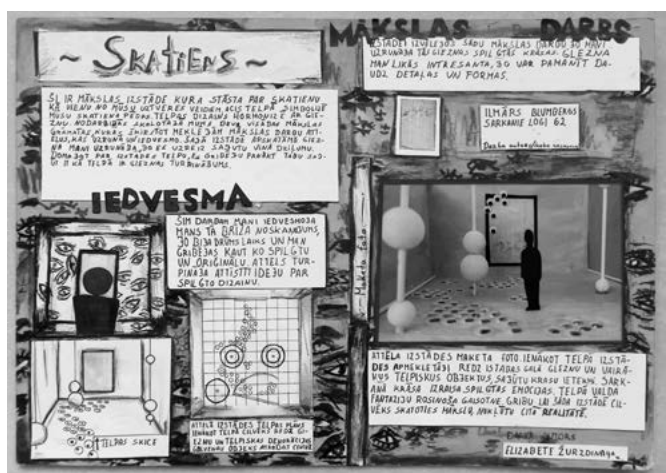 ~ SKATIENS ~
ŠĪ IR MĀKSLAS IZSTĀDE KURA STĀSTA PAR SKATIENU
KĀ VIENU NO MŪSU UZTVERES VEIDIEM. ACIS TELPĀ SIMBOLIZĒ
MŪSU SKATIENA PĒDAS. TELPAS DIZAINS HARMONIZĒ AR GLE-
ZNU. NODARBĪBAS SKOLOTĀJA MUMS DEVA VISĀDAS MĀKSLAS
GRĀMATAS, KURĀS ŠĶIRSTOT MEKLĒJĀM MĀKSLAS DARBU ATT-
ĒLU, KAS UZRUNĀ UN IEDVESMO. ŠAJĀ IZSTĀDĒ APSKATĀMĀ GLE-
ZNA MANI UZRUNĀJA, JO ES UZREIZ SAJUTU VIŅĀ DZIĻUMU.
DOMĀJOT PAR IZSTĀDES TELPU, GRIBĒJU PANĀKT TĀDU SAJ-
ŪTU KĀ TELPA IR GLEZNAS TURPINĀJUMS.
IEDVESMA
ŠIM DARBAM MANI IEDVESMOJA
MANS TĀ BRĪŽA NOSKAŅOJUMS,
JO BIJA DRŪMS LAIKS UN MAN
GRIBĒJĀS KAUT KO SPILGTU
UN ORIĢINĀLU. ATTĒLS TUR-
PINĀJA ATTĪSTĪT IDEJU PAR
SPILGTO DIZAINU.
TELPAS SKICE
ATTĒLĀ IZSTĀDES TELPAS PLĀNS
IENĀKOT TELPĀ CILVĒKS REDZ GLE-
ZNU UN TELPISKAS DEKORĀCIJAS
GALVENAIS OBJEKTS ATRODAS CENTRĀ
MĀKSLAS DARBS
IZSTĀDEI IZVĒLĒJOS ŠĀDU MĀKSLAS DARBU JO MANI
UZRUNĀJA TĀS GLEZNOS SPILGTĀS KRĀSAS. GLEZNA
MAN LIKĀS INTRESANTA, JO VAR PAMANĪT DA-
UDZ DETAĻAS UN FORMAS.
ILMĀRS BLUMBERGS
SARKANIE LOGI 62
Maketa foto
ATTĒLĀ IZSTĀDES MAKETA FOTO. IENĀKOT TELPĀ IZSTĀ-
DES APMEKLĒTĀJI REDZ ISTABAS GALĀ GLEZNU UN VAIRĀ-
KUS TELPISKUS OBJEKTUS, SAJŪTU KRĀSU IETEKMI. SARK-
ANĀ KRĀSA IZRAISA SPILGTAS EMOCIJAS. TELPĀ VALDA
FANTĀZIJU ROSINOŠA GAISOTNE. GRIBU, LAI ŠĀDĀ IZSTĀDĒ CIL-
VĒKS SKATOTIES MĀKSLĀ, NOKĻŪTU CITĀ REALITĀTĒ.
ELIZABETE ŽURZDIŅA